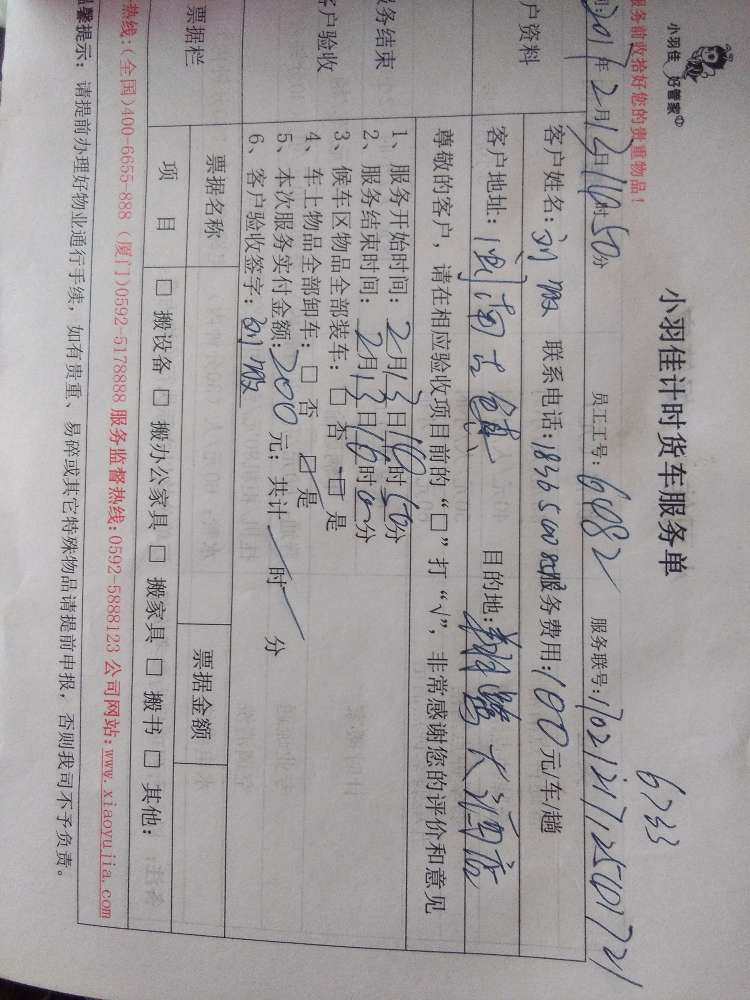 小羽佳 好管家
小羽佳计时货车服务单
6733
服务前收拾好您的贵重物品!
2017年2月12日14时50分 员工工号:6482 服务联号:170212172501721
户资料
客户姓名:刘 联系电话: 服务费用:100元/车/趟
客户地址:闽南古镇 目的地:翔鹭大酒店
尊敬的客户,请在相应验收项目前的“□”打“√”,非常感谢您的评价和意见
服务结束
客户验收
1、服务开始时间:2月13日14时50分
2、服务结束时间:2月13日16时0分
3、候车区物品全部装车:□ 否 ☑ 是
4、车上物品全部卸车:□ 否 ☑ 是
5、本次服务实付金额:200元;共计 时 分
6、客户验收签字:刘
票据栏
票据名称 票据金额
项 目 □ 搬设备 □ 搬办公家具 □ 搬家具 □ 搬书 □ 其他:
热线:(全国)400-6655-888 (厦门)0592-5178888 服务监督热线:0592-5888123 公司网站:www.xiaoyujia.com
温馨提示:请提前办理好物业通行手续,如有贵重、易碎或其它特殊物品请提前申报,否则我司不予负责。